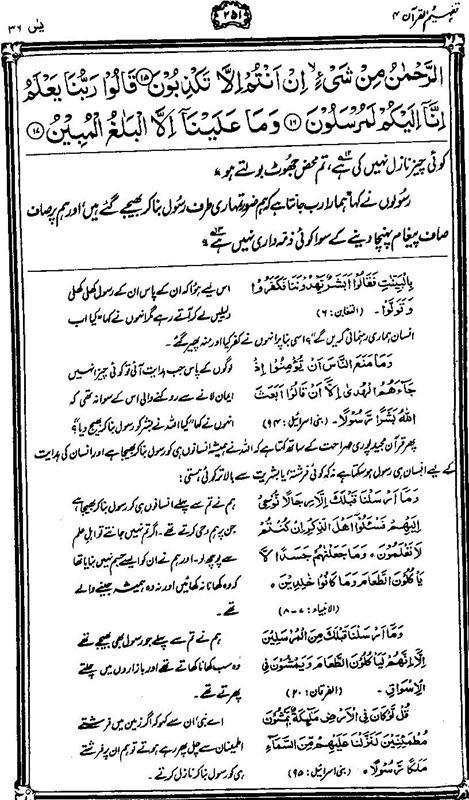 تفہیم القرآن ۴
۲۵۱
یٰسٓ ۳۶
الرَّحْمٰنُ مِنْ شَیْءٍ اِنْ اَنْتُمْ اِلَّا تَكْذِبُوْنَ ﴿۱۵﴾ قَالُوْا رَبُّنَا یَعْلَمُ
اِنَّاۤ اِلَیْكُمْ لَمُرْسَلُوْنَ ﴿۱۶﴾ وَمَا عَلَیْنَاۤ اِلَّا الْبَلٰغُ الْمُبِیْنُ ﴿۱۷﴾
کوئی چیز نازل نہیں کی ہے۱۲، تم محض جھوٹ بولتے ہو
رسولوں نے کہا "ہمارا رب جانتا ہے کہ ہم ضرور تمہاری طرف رسول بنا کر بھیجے گئے ہیں، اور ہم پر صاف
صاف پیغام پہنچا دینے کے سوا کوئی ذمہ داری نہیں ہے۱۳"
بِالْبَیِّنٰتِ فَقَالُوْۤا اَبَشَرٌ یَّهْدُوْنَنَا فَكَفَرُوْا اس لیے ہوا کہ ان کے پاس ان کے رسول کھلی کھلی
وَتَوَلَّوْا۔ (التغابن: ۶) دلیلیں لے کر آتے رہے مگر انہوں نے کہا "کیا اب
انسان ہماری رہنمائی کریں گے" اسی بنا پر انہوں نے کفر کیا اور منہ پھیر گئے۔
وَمَا مَنَعَ النَّاسَ اَنْ یُّؤْمِنُوْۤا اِذْ لوگوں کے پاس جب ہدایت آئی تو کوئی چیز انہیں
جَآءَهُمُ الْهُدٰۤى اِلَّاۤ اَنْ قَالُوْۤا اَبَعَثَ ایمان لانے سے روکنے والی اس کے سوا نہ تھی کہ
اللّٰهُ بَشَرًا رَّسُوْلًا۔ (بنی اسرائیل: ۹۴) انہوں نے کہا "کیا اللہ نے بشر کو رسول بنا کر بھیج دیا"؟
پھر قرآن مجید پوری صراحت کے ساتھ کہتا ہے کہ اللہ نے ہمیشہ انسانوں ہی کو رسول بنا کر بھیجا ہے اور انسان کی ہدایت
کے لیے انسان ہی رسول ہو سکتا ہے نہ کہ کوئی فرشتہ، یا بشریت سے بالاتر کوئی ہستی:
وَمَاۤ اَرْسَلْنَا قَبْلَكَ اِلَّا رِجَالًا نُّوْحِیْۤ ہم نے تم سے پہلے انسانوں ہی کو رسول بنا کر بھیجا ہے
اِلَیْهِمْ فَسْئَلُوْۤا اَهْلَ الذِّكْرِ اِنْ كُنْتُمْ جن پر ہم وحی کرتے تھے۔ اگر تم نہیں جانتے تو اہل علم
لَا تَعْلَمُوْنَ ۔ وَمَا جَعَلْنٰهُمْ جَسَدًا لَّا سے پوچھ لو۔ اور ہم نے ان کو ایسے جسم نہیں بنایا تھا
یَاْكُلُوْنَ الطَّعَامَ وَمَا كَانُوْا خٰلِدِیْنَ ۔ کہ وہ کھانا نہ کھائیں اور نہ وہ ہمیشہ جینے والے
(الانبیاء: ۷-۸) تھے۔
وَمَاۤ اَرْسَلْنَا قَبْلَكَ مِنَ الْمُرْسَلِیْنَ ہم نے تم سے پہلے جو رسول بھی بھیجے تھے
اِلَّاۤ اِنَّهُمْ لَیَاْكُلُوْنَ الطَّعَامَ وَیَمْشُوْنَ فِی وہ سب کھانا کھاتے تھے اور بازاروں میں چلتے
الْاَسْوَاقِ۔ (الفرقان: ۲۰) پھرتے تھے۔
قُلْ لَّوْ كَانَ فِی الْاَرْضِ مَلٰٓئِكَةٌ یَّمْشُوْنَ اے نبی، ان سے کہو کہ اگر زمین میں فرشتے
مُطْمَئِنِّیْنَ لَنَزَّلْنَا عَلَیْهِمْ مِّنَ السَّمَآءِ اطمینان سے چل پھر رہے ہوتے تو ہم ان پر فرشتے
مَلَكًا رَّسُوْلًا۔ (بنی اسرائیل: ۹۵) ہی کو رسول بنا کر نازل کرتے۔